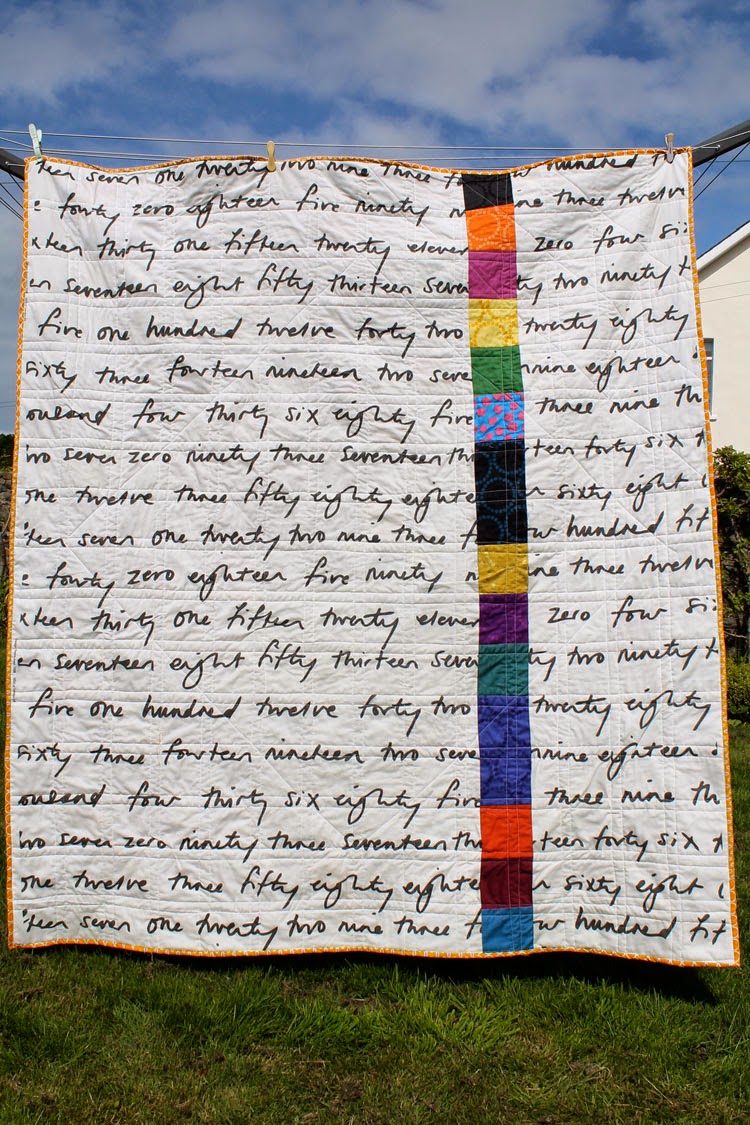 teen seven one twenty two nine three f hundred th
e fourty zero eighteen five ninety n ne three twelv
xteen thirty one fifteen twenty eleven zero four six
en seventeen eight fifty thirteen seven ty two ninety t
five one hundred twelve forty two twenty eighty
sixty three fourteen nineteen two seve nine eighteen
ousand four thirty six eighty five three nine th
wo seven zero ninety three seventeen th rteen forty six t
one twelve three fifty eighty eighte n sixty eight
teen seven one twenty two nine three f ur hundred fift
e fourty zero eighteen five ninety n ne three twelv
xteen thirty one fifteen twenty eleven zero four six
en seventeen eight fifty thirteen seven ty two ninety t
five one hundred twelve forty two twenty eighty
sixty three fourteen nineteen two seve nine eighteen
ousand four thirty six eighty five three nine th
wo seven zero ninety three seventeen th teen forty six t
one twelve three fifty eighty eighte n sixty eight
teen seven one twenty two nine three f ur hundred fift